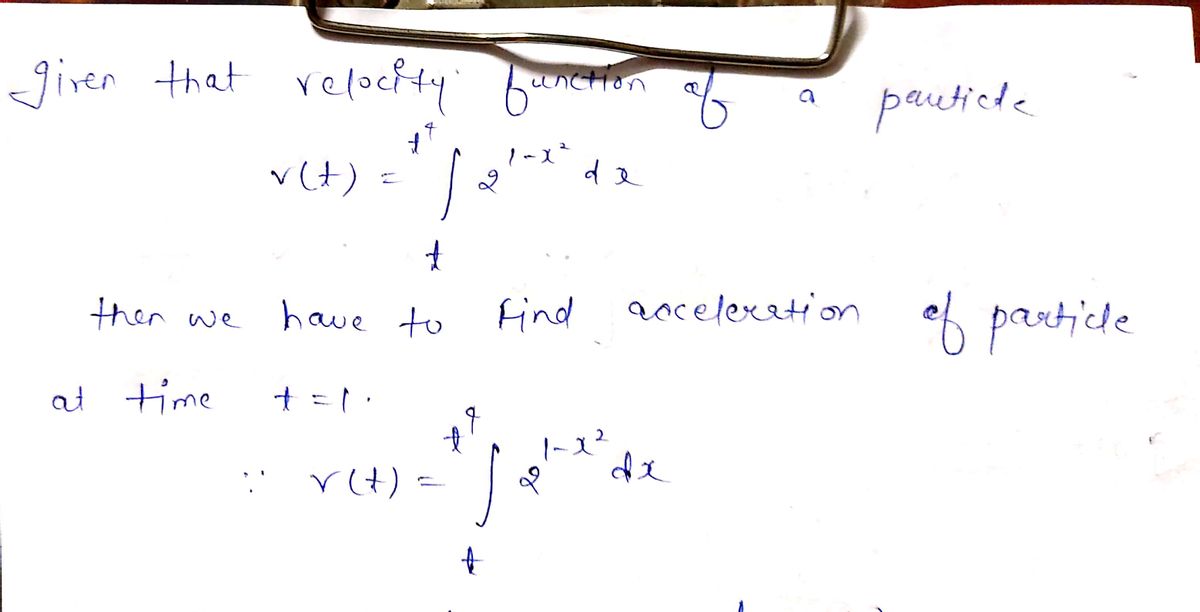 given that velocity function of a particle
v(t) = ∫_t^{t^4} 2^{1-x^2} dx
then we have to find acceleration of particle
at time t = 1.
∵ v(t) = ∫_t^{t^4} 2^{1-x^2} dx